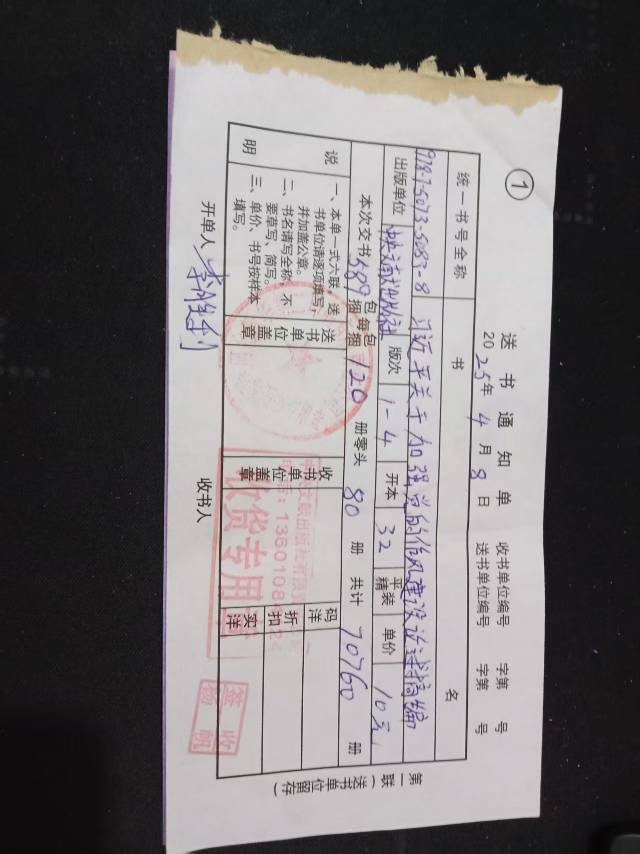 ①
送书通知单
2025年4月8日
收书单位编号 字第 号
送书单位编号 字第 号
统一书号全称 书 名
978-7-5073-5087-8 习近平关于加强党的作风建设论述摘编
出版单位 中央文献出版社 版次 1-4 开本 32 平装 精装 单价 10元
本次交书 589 包捆 每包捆 120 册 零头 80 册 共计 70760 册
说明
一、本单一式六联,送
书单位请逐项填写,
并加盖公章。
二、书名请写全称,不
要草写、简写。
三、单价、书号按样本
填写。
送书单位盖章
收书单位盖章
码洋
折扣
实洋
收货专用章
签收
杨帆
开单人
收书人
第一联(送书单位留存)